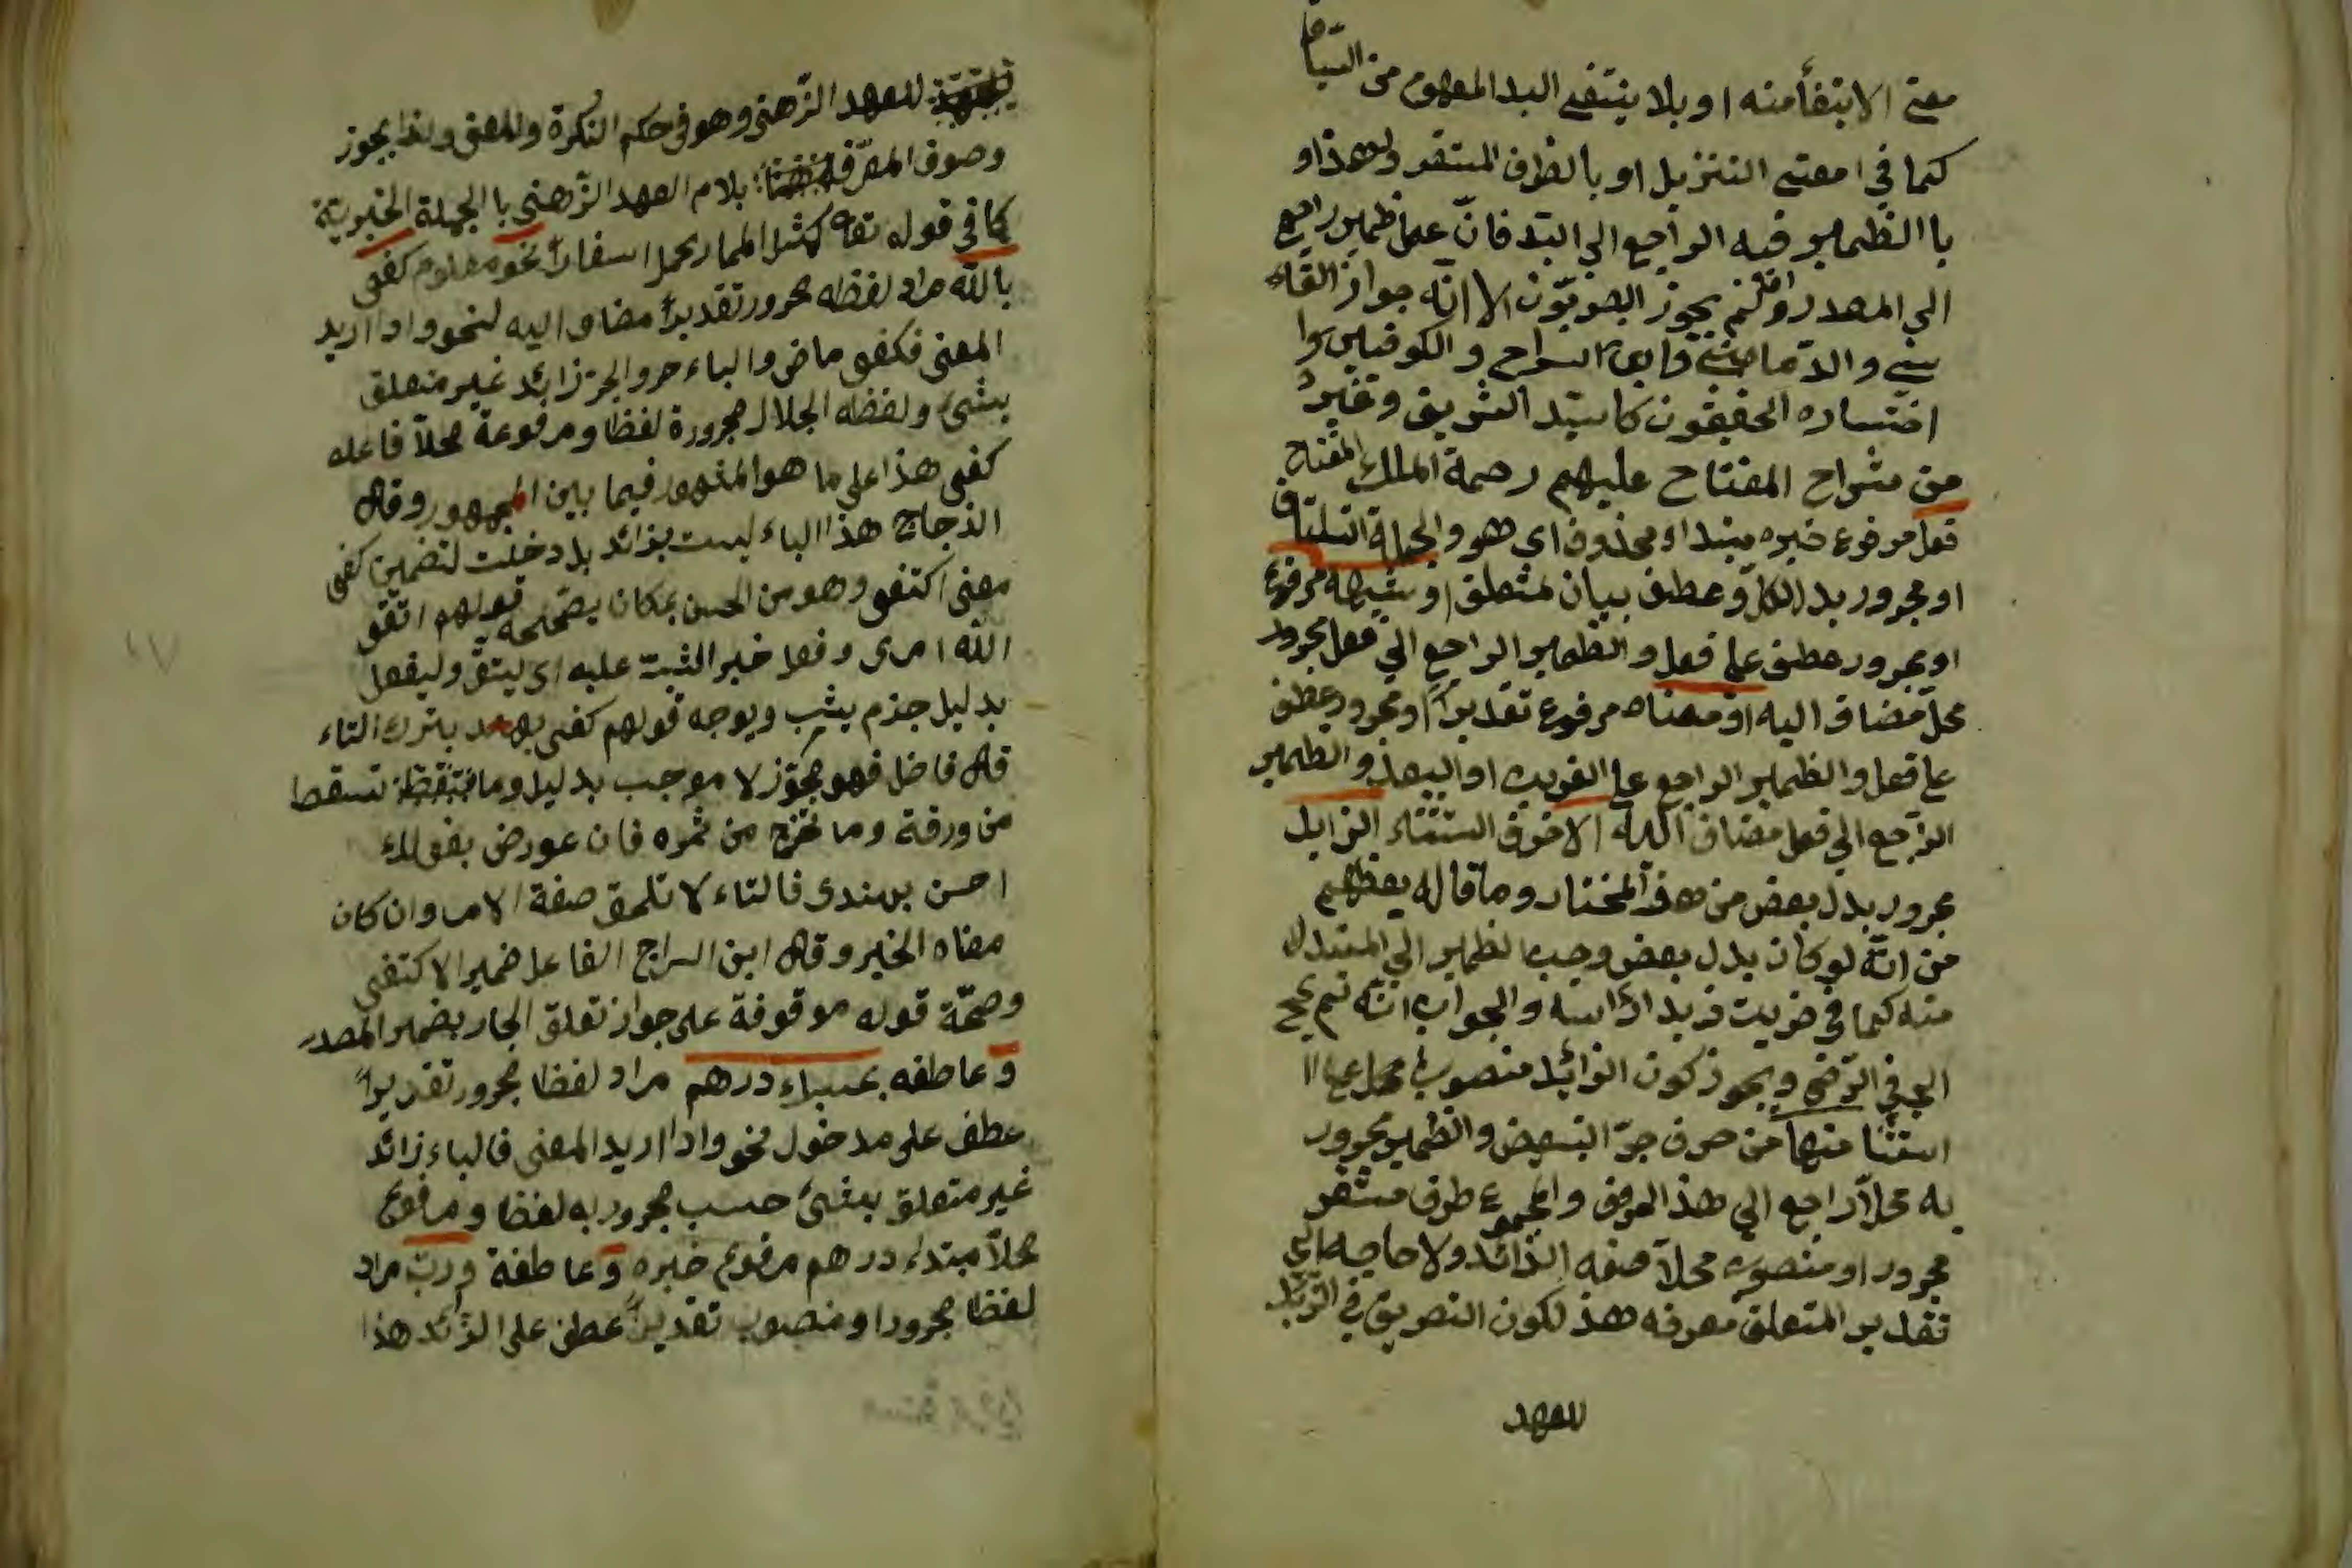 معنى الابتفأمنه او بلا ينتفى البدالمفهوم من السياق
كما في امعنى التنزيل او بالظرف المستقر ولهمذااو
با الظمير فيه الراجع الي البد فانّ عمل ظمير راجع
الي المصدر وان لم يجوز البصريّون الا انّه جواز القاء
ني والدّماميني وابن السراج والكوفيين وا
اختساره المحققون كاسيّد الشريف وغيره
من شراح المفتاح عليهم رحمة الملك المفتاح
فعل مرفوع خبره مبتداء محذوف اي هو والجملة
او مجرور بدل الكلّ وعطف بيان لمتعلق او شبهه مرفوع
او مجرور عطف على فعل والظمير الراجع الي فعل مجرور
محلّ مضاف اليه او معناه مرفوع تقديراً او مجرور عطف
على فعل والظمير الراجع على القريب او البعد والظمير
الراجع الي فعل مضاف اليه الا خرف استثناء الزايل
مجرور بدل بعض من هذ المختار وما قاله بعظهم
من انّه لو كان بدل بعض وجب الظمير الي المبتدل
منه كما في ضربت زيد اراسه والجواب انّه لم يج
الي في الرّضى ويجوز كون الزائد منصوب محل على ا
استثنا منها من حرف جرّ التبعيض والظمير مجرور
به محلاّ راجع الي هذ العرف والمجموع ظرف مستقر
مجرور او منصوب محلاّ صفه الزّائد ولا حاجه الي
تقدير المتعلق معرفه هذ لكون التعريف في الزيّل
للعهد
للعهد الزّهنى وهو في حكم النكرة والمعنى ولذا يجوز
وصوف المعرّفه بلام العهد الزّهنى با الجملة الخبريّة
كما في قوله تعالى كمثل الحمار يحمل اسفاراً نحو معلوم كفى
بالله مراد لفظه مجرور تقديراً مضاف اليه لنحو واذا اريد
المعنى فكفى ماض والباء حرو الجر زائد غير متعلق
بشئ ولفظه الجلال مجرورة لفظا ومرفوعة محلاّ فاعله
كفى هذا على ما هو المشهور فيما بين الجمهور وقال
الذجاج هذا الباء ليست بزائد بل دخلت لتضمين كفى
معنى اكتفى وهو من الحسن بمكان يصحّحه قولهم اتقى
الله امرى وفعل خير الثبت عليه اى ليتق وليفعل
بدليل جذم يثب ويوجه قولهم كفى بهند بترك التاء
قال فاضل فهو مجوّز لا موجب بدليل وما تسقط
من ورقة وما تخرج من ثمره فان عورض بقولك
احسن بهندى فالتاء لا تلحق صفة الامر وان كان
معناه الخير وقال ابن السراج الفاعل ضمير الاكتفى
وصحّة قوله موقوفة على جواز تعلق الجار بضمير المصدر
وعاطفه بحسبك درهم مراد لفظا مجرور تقديراً
عطف على مدخول نحو واذا اريد المعنى فالباء زائد
غير متعلق بشئ حسب مجرور به لفظا ومرفوع
محلاّ مبتدا درهم مرفوع خبره وعاطفة وربّ مراد
لفظا مجرور او منصوب تقديراً عطف على الزّائد هذا